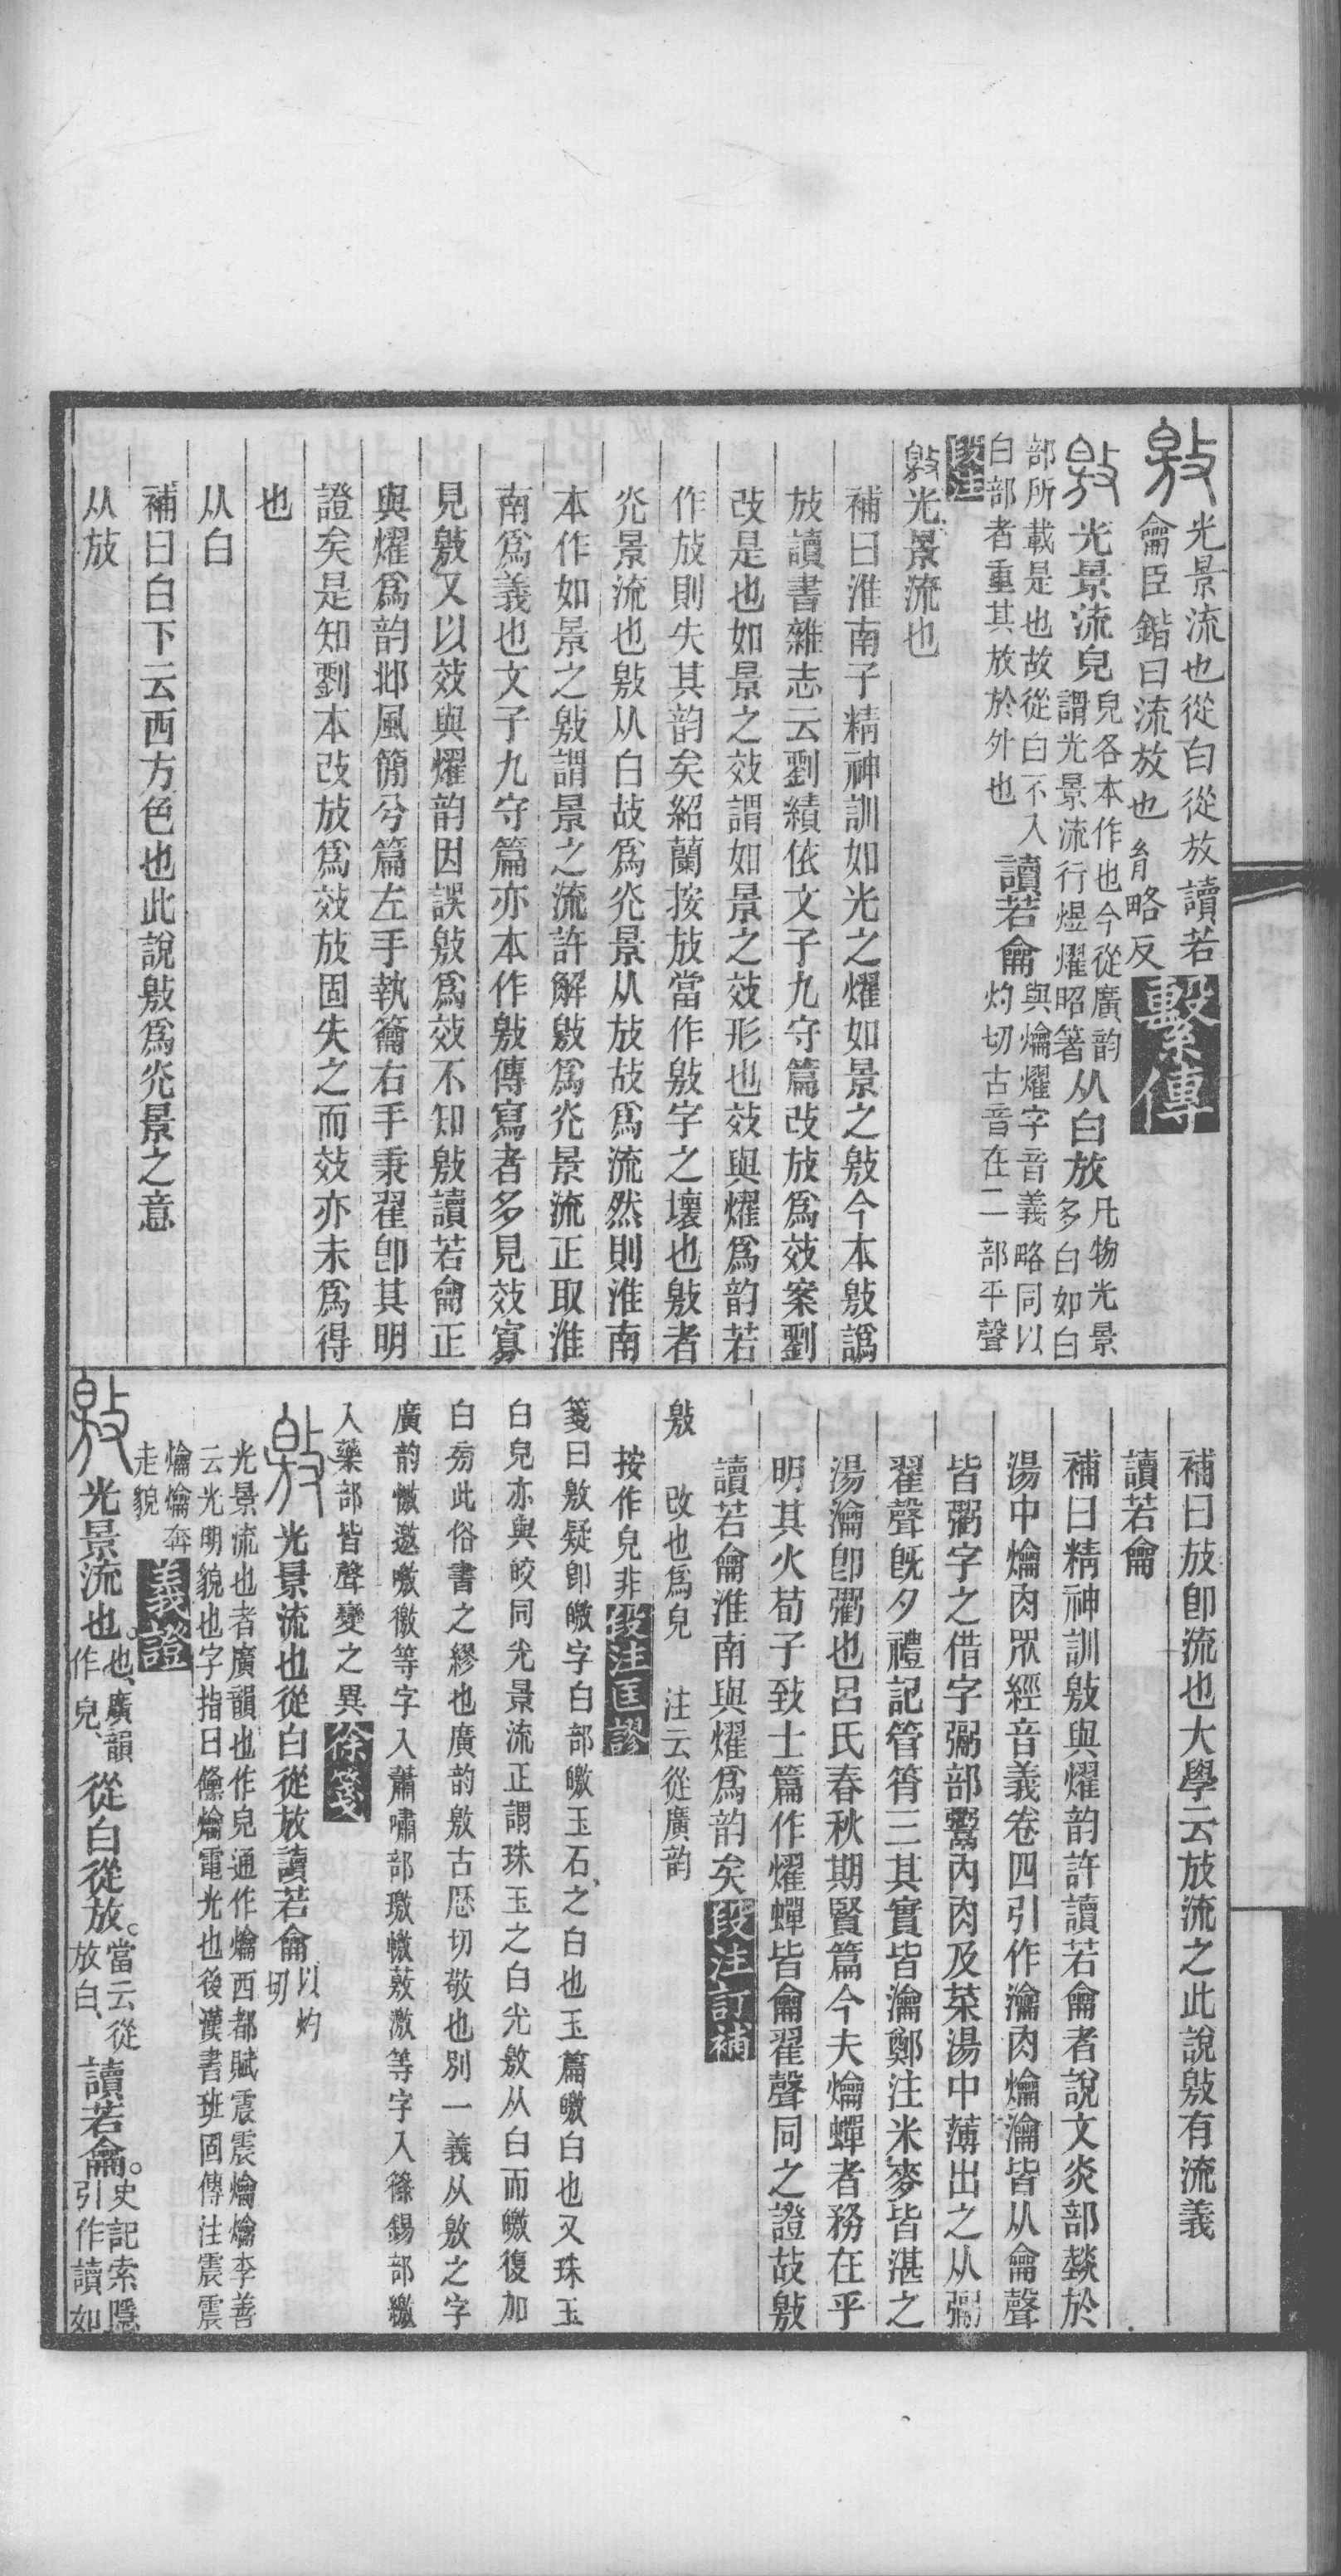 敫光景流也從白從放讀若
龠臣鍇曰流放也 肙略反 繫傳
敫 光景流皃 皃各本作也今從廣韵
謂光景流行煜燿昭箸 从白放 凡物光景
多白如白
部所載是也故從白不入
白部者重其放於外也 讀若龠 與爚燿字音義略同以
灼切古音在二部平聲
段注
敫光景流也
補曰淮南子精神訓如光之燿如景之敫今本敫譌
放讀書雜志云劉績依文子九守篇改放爲效案劉
改是也如景之效謂如景之效形也效與燿爲韵若
作放則失其韵矣紹蘭按放當作敫字之壞也敫者
灮景流也敫从白故爲灮景从放故爲流然則淮南
本作如景之敫謂景之流許解敫爲灮景流正取淮
南爲義也文子九守篇亦本作敫傳寫者多見效寡
見敫又以效與燿韵因誤敫爲效不知敫讀若龠正
與燿爲韵邶風簡兮篇左手執籥右手秉翟卽其明
證矣是知劉本改放爲效放固失之而效亦未爲得
也
从白
補曰白下云西方色也此說敫爲灮景之意
从放
補曰放卽流也大學云放流之此說敫有流義
讀若龠
補曰精神訓敫與燿韵許讀若龠者說文炎部燅於
湯中爚肉眾經音義卷四引作瀹肉爚瀹皆从龠聲
皆鬻字之借字弼部鬻內肉及菜湯中薄出之从弼
翟聲旣夕禮記管筲三其實皆瀹鄭注米麥皆湛之
湯瀹卽鬻也呂氏春秋期賢篇今夫爚蟬者務在乎
明其火荀子致士篇作燿蟬皆龠翟聲同之證故敫
讀若龠淮南與燿爲韵矣 段注訂補
敫 改也爲皃 注云從廣韵
按作皃非 段注匡謬
箋曰敫疑卽皦字白部皦玉石之白也玉篇皦白也又珠玉
白皃亦與皎同光景流正謂珠玉之白光敫从白而皦復加
白旁此俗書之繆也廣韵敫古歷切敬也別一義从敫之字
廣韵憿邀噭徼等字入蕭嘯部璬皦敫激等字入篠錫部繳
入藥部皆聲變之異 徐箋
敫 光景流也從白從放讀若龠 以灼
切
光景流也者廣韻也作皃通作爚西都賦震震爚爚李善
云光明貌也字指曰鯈爚電光也後漢書班固傳注震震
爚爚奔
走貌 義證
敫 光景流也。 也、廣韻
作皃、 從白從放。 當云從
放白、 讀若龠。 史記索隱
引作讀如